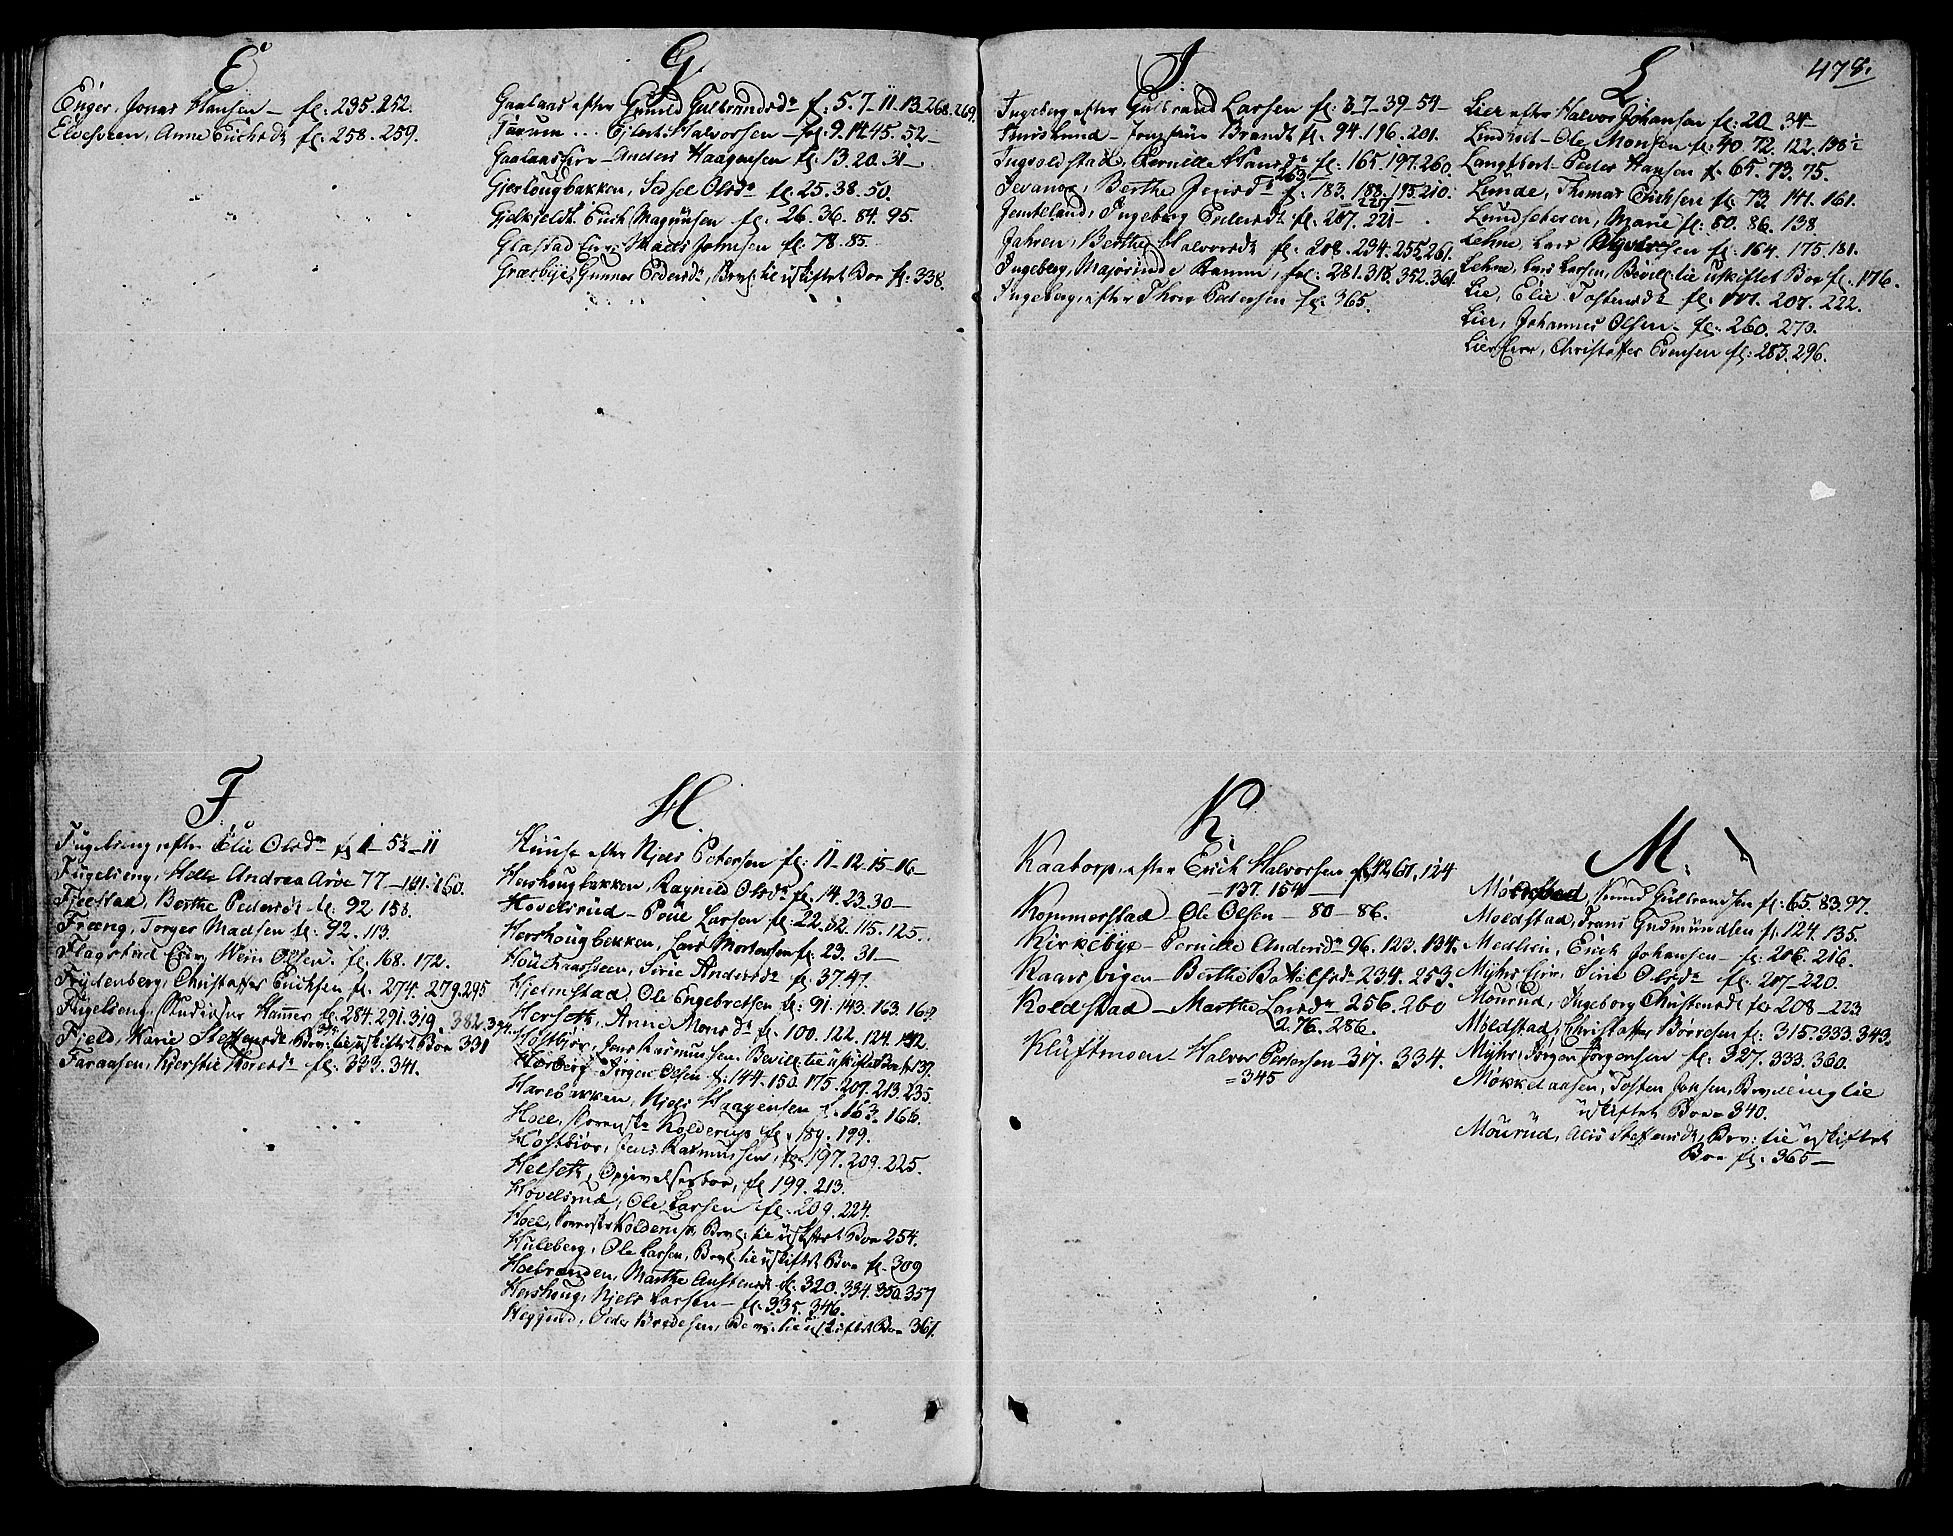 E
Enger, Jonas Hansen – fl: 235. 252.
Elvesveen, Anne Erichsdr fl: 258. 259.
F
Fugelseng, efter Elie Olsdr fl 1 – 5½ – 11
Fugelseng, Andrea Aröe 77 – 141. 160.
Fjelstad, Berthe Pedersdr fl. 92. 158.
Fræng, Torger Madsen fl: 92. 113.
Flagstad Eier, Olsen. fl. 168. 172.
Frydenberg, Christoffer Erichsen fl: 274. 279. 295
Fugelseng, Studiosus Hammer fl. 284. 291. 319. 382. 394.
Fjeld, Karie Steffensdr Bev: tie uskiftet Boe 331
Faraasen, Kjerstie Thoresdr fl. 333. 341.
G
Gaalaas efter Gunild Gulbrandsdr f: 5. 7 – 11. 13. 268. 269.
... Halvorsen – fol 9. 14. 45. 52 –
Gaalaas Eier – Anders Haagensen fl; 13. 20. 31 –
Gjerlougbakken, Sidsel Olsdr fl. 25. 38. 50.
Erich Magnusen fl. 26. 36. 84. 95.
Glæstad Eier Mads Johnsen fl. 78. 85.
Græsbye, Gunner Pedersdr, Bevl: tie uskiftet Boe fl: 338.
H
efter Njels Petersen fl: 11 – 12. 15 – 16 –
Hershougbakken, Ragnild Olsdr fl. 14. 23. 30 –
Hovelsrud – Poul Larsen fl. 22. 82. 115. 125.
Hershougbakken, Lars Mortensen fl. 23. 31 –
Sirie Andersdr fl. 37. 47.
Hjelmstad, Ole Engebretsen fl: 91. 143. 163. 169.
Anne Monsdr fl. 100. 122. 124. 142.
Hostbiör, Jens Rasmussen. Bevill: tie uskiftet Boe fl 137.
Hörberg Jörgen Olsen f: 144. 150. 175. 207. 213. 235.
Harebakken, Njels Haagensen fl. 163. 166.
Hoel, Kolderup fl. 189. 199.
Hostbiör, Jens Rasmussen, fl. 197. 209. 225.
Helseth, Opgivelsesboe, fl. 199. 213.
Hovelsrud, Ole Larsen fl. 209. 224.
Hoel, Kolderup, Bevl: tie uskiftet Boe 254.
Huleberg, Ole Larsen, Bevl: tie uskiftet Boe fl. 309
Hoebrænden, Marthe Austensdr fl: 320. 334. 350. 357
Hershoug, Njels Larsen – fl. 335. 346.
Peder Bredesen, Bevl: tie uskiftet Boe 361.
I
478.
Ingeberg efter Gulbrand Larsen fl: 3. 7 – 39 – 54 –
Brandt fl. 94. 196. 201.
Ingvoldstad, Pernille Hansdr fl. 165. 197. 260.
263.
Jevanor, Berthe Jensdr f. 183. 188. 195 210.
Jemteland, Ingeborg Pedersdr fl. 207. 221 –
Jahren, Berthe Halvorsdr fl. 208. 234. 255. 261.
Ingeberg, Majorinde Ramm, fol: 281. 318. 352. 361.
Ingeberg, efter Thore Pedersen fl. 365.
K.
Kaatorp, efter Erich Halvorsen fl 42 61, 124
– 137. 154 –
Kommerstad – Ole Olsen – 80 – 86.
Kirkebye – Pernille Andersdr 96. 123. 134.
Kaarsvigen – Berthe 234. 253.
Koldstad – Marthe Larsdr 256. 260
276. 286.
Kluftmoen – Halvor Pedersen 317. 334.
= 345
L
Lier efter Halvor Johansen fl: 20. 34 –
Ole Monsen fl: 40. 72. 122. 138½
Peder Hansen fl. 65. 73. 75.
Lunde, Thomas Erichsen fl. 73. 141. 161.
Lundsetoren, Marie fl: 80. 86. 138
Lehne, Lars fl: 164. 175. 181.
Lehne, Lars Larsen, Bevill: tie uskiftet Boe fl. 176.
Lie, Elie Tostensdr fl. 207. 222.
Lier, Johannes Olsen – fl: 260. 270.
Lier Eier, Christoffer Evensen fl: 283. 296.
M.
Gulbrandsen fl: 65. 83. 97.
Moldstad, Frans Gudmundsen fl: 124. 135.
Medlien, Erich Johansen – fl: 206. 216.
Myhrs Eier, Sirie Olsdr fl. 207 – 220.
Mourud, Ingeborg Christensdr fl 208 – 223
Moldstad, Christoffer Börresen fl: 315. 333. 343.
Myhr, Jörgen Jörgensen fl. 327. 333. 360.
Mökkelaasen, Tosten Jensen, Bevilling tie
uskiftet Boe 340.
Mourud, Steffensdr, Bev: tie uskiftet
Boe fl. 365 –